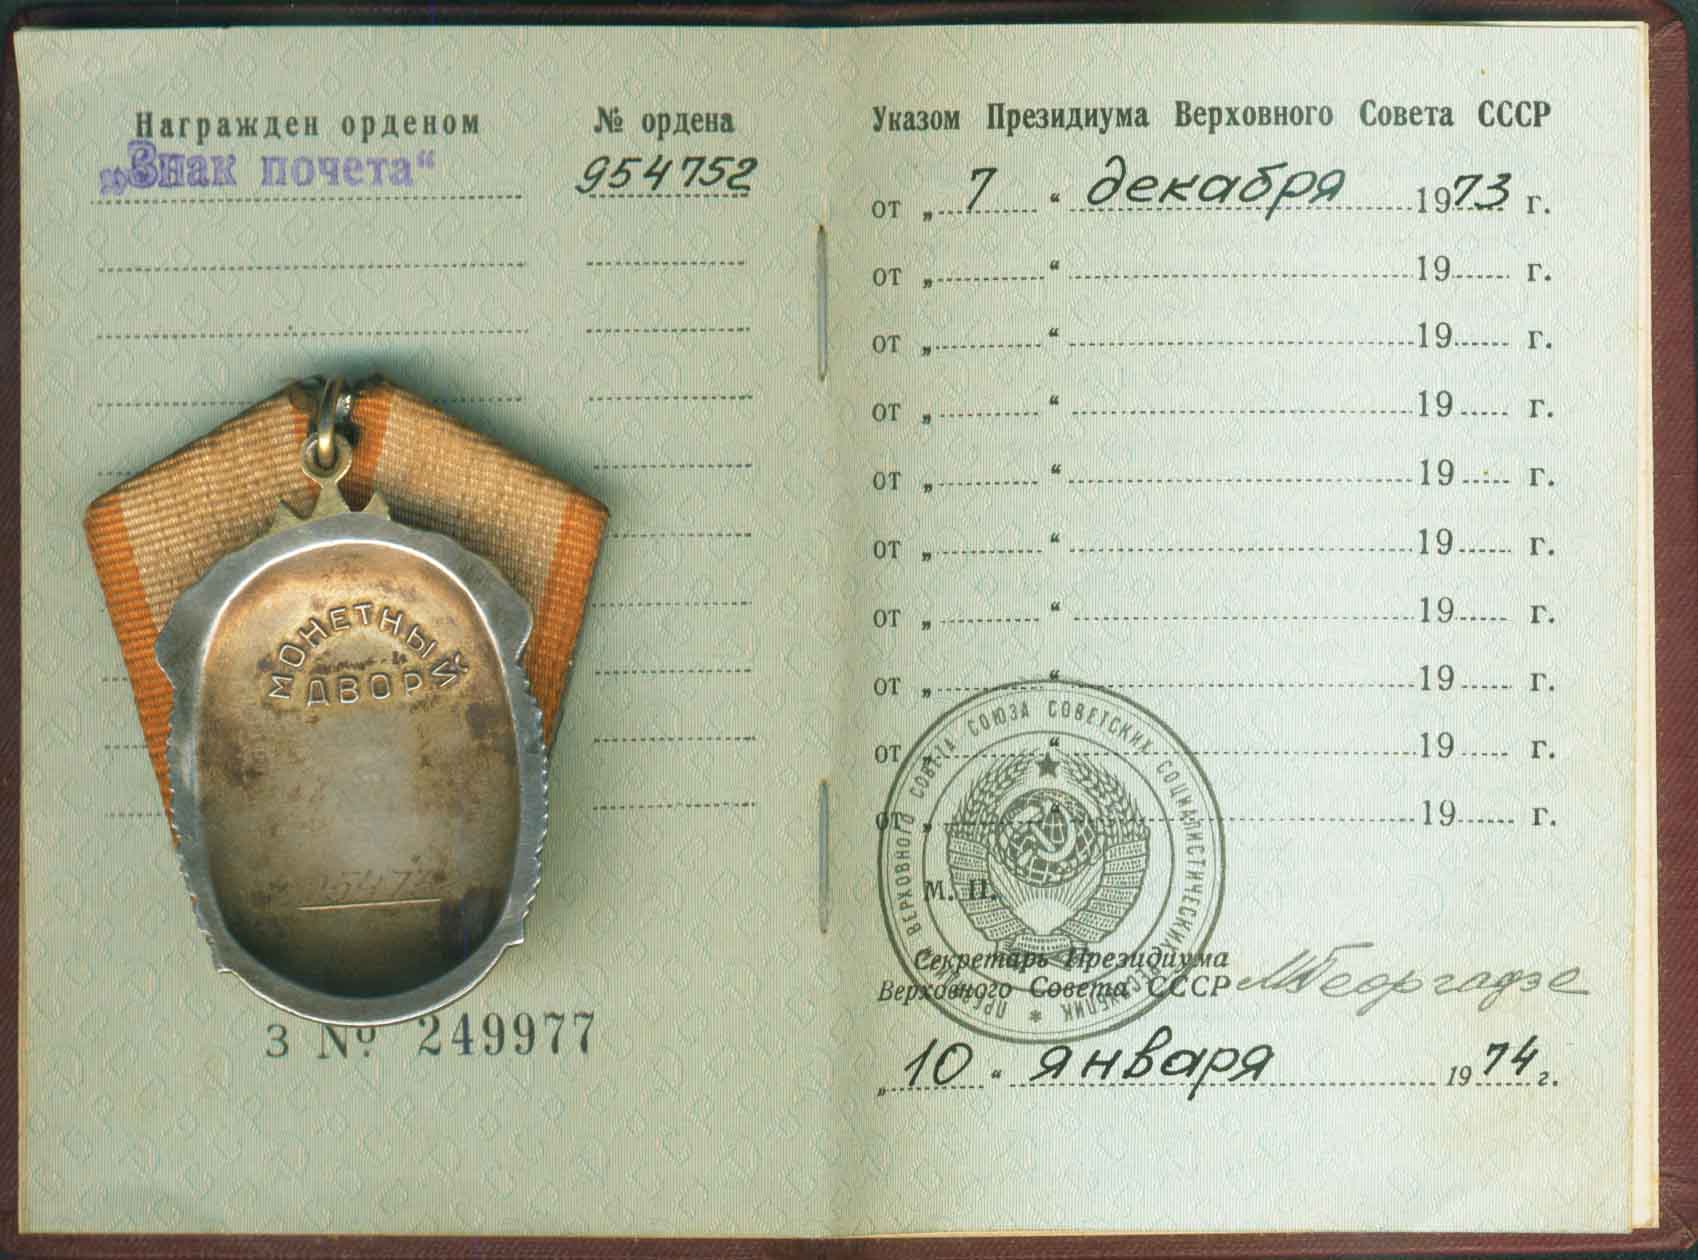 Награжден орденом
„Знак почета“
№ ордена
954752
МОНЕТНЫЙ
ДВОР
З № 249977
Указом Президиума Верховного Совета СССР
от „ 7 “ декабря 1973 г.
от „ “ 19 г.
от „ “ 19 г.
от „ “ 19 г.
от „ “ 19 г.
от „ “ 19 г.
от „ “ 19 г.
от „ “ 19 г.
от „ “ 19 г.
от „ “ 19 г.
М. П.
ПРЕЗИДИУМ ВЕРХОВНОГО СОВЕТА СОЮЗА СОВЕТСКИХ СОЦИАЛИСТИЧЕСКИХ РЕСПУБЛИК
Секретарь Президиума
Верховного Совета СССР МГеоргадзе
„ 10 “ января 1974 г.